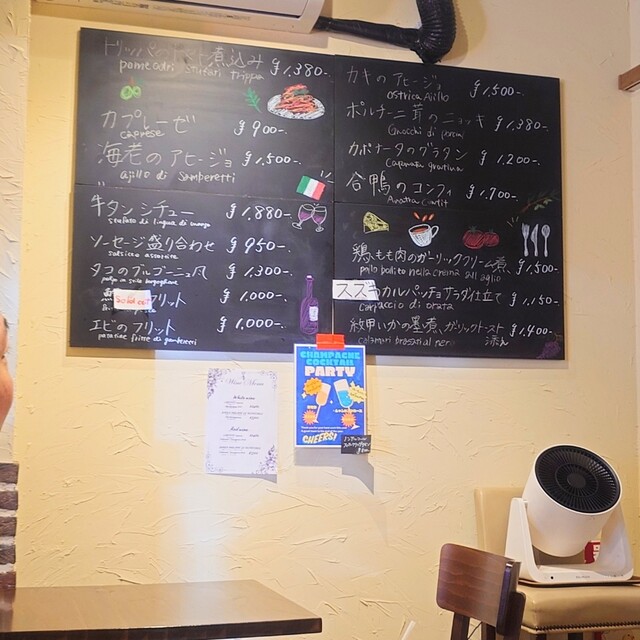 トリッパのトマト煮込み ¥1,380-.
pomodori stufati trippa
カプレーゼ ¥900-.
caprese
海老のアヒージョ ¥1,500-.
ajillo di gamberetti
牛タンシチュー ¥1,880-.
stufato di lingua di manzo
ソーセージ盛り合わせ ¥950-.
salsicce assortite
タコのブルゴーニュ風 ¥1,300-.
Sold out フリット ¥1,000-.
エビのフリット ¥1,000-.
カキのアヒージョ ¥1,500-.
Ostrica Ajillo
ポルチーニ茸のニョッキ ¥1,380-.
Gnocchi di porcini
カポナータのグラタン ¥1,200-.
Caponata gratina
合鴨のコンフィ ¥1,700-.
Anatra Confit
鶏もも肉のガーリッククリーム煮 ¥1,500-.
pollo bollito nella crema all aglio
スズキカルパッチョサラダ仕立て ¥1,150-.
carpaccio di orata
紋甲いかの墨煮、ガーリックトースト添え ¥1,400-.
calamari brasati al nero
Wine Menu
White wine
Red wine
CHAMPAGNE
COCKTAIL
PARTY
CHEERS!